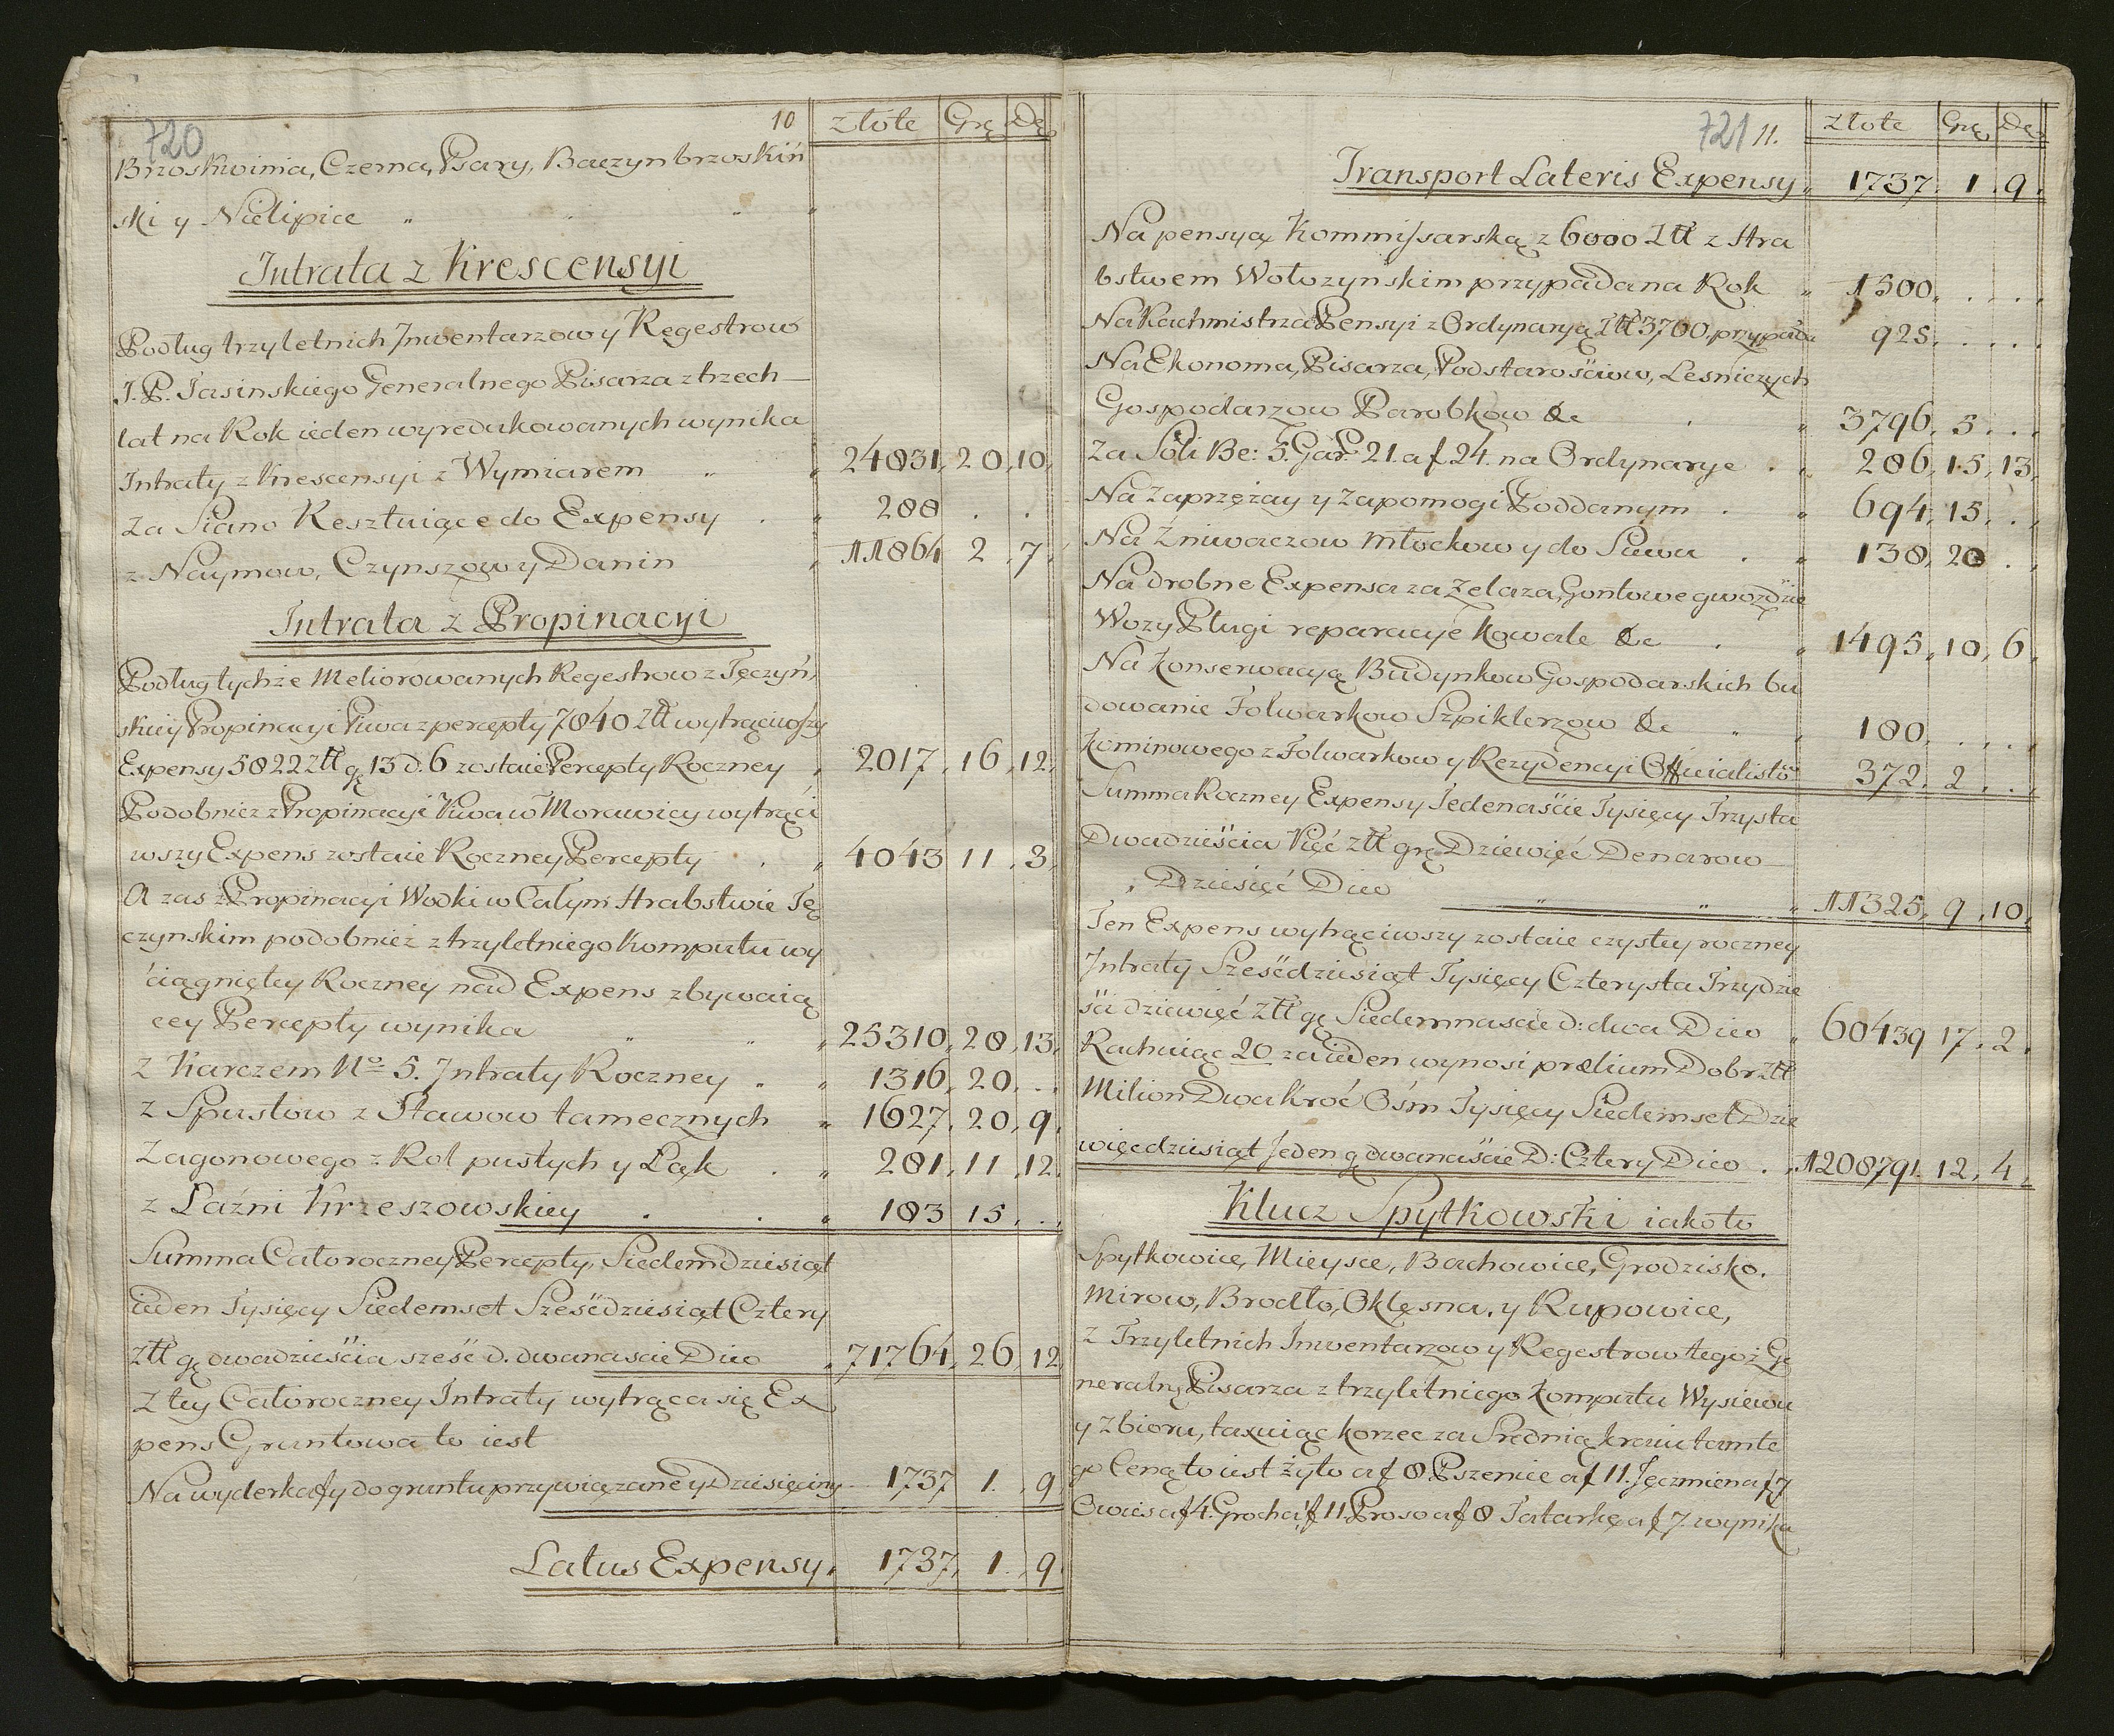 720
10 Złote Grę Dę
Brzoskwinia, Czerna, Psary, Baczyn brzoskiń
ski y Nielipice
Intrata z Krescensyi
Podług trzyletnich Inwentarzow y Regestrow
J. P. Jasinskiego Generalnego Pisarza z trzech
lat na Rok ieden wyredukowanych wynika
Intraty z Krescensyi z Wymiarem 24831. 20. 10.
Za Siano Resztuiące do Expensy 288 . .
z Naymow, Czynszow y Danin 11864 2 . 7.
Intrata z Propinacyi
Podług tychże Meliorowanych Regestrow z Tęczyń,
skiey Propinacyi Piwa z percepty 7840 Ztł wytrąciwszy
Expensy 5822 Ztł gę 13 d. 6 zostaie Percepty Roczney 2017. 16. 12.
Podobniez z Propinacyi Piwa w Morawicy wytrąci
wszy Expens zostaie Roczney Percepty 4043 11. 3.
A zas z Propinacyi Wodki w Całym Hrabstwie Tę
czynskim podobnież z trzyletniego Komputu wy
ciągniętey Roczney nad Expens zbywaią
cey Percepty wynika 25310. 28. 13.
z Karczem No 5. Intraty Roczney 1316. 20. . .
z Spustow z Stawow tamecznych 1627. 20. 9.
Zagonowego z Rol pustych y Łąk 281. 11. 12.
z Łaźni Krzeszowskiey 183 15. . .
Summa Całoroczney Percepty, Siedemdziesiąt
ieden Tysięcy Siedemset Sześćdziesiąt Cztery
Ztł gę dwadzieścia sześć d. dwanascie Dico 71764. 26. 12.
Z tey Całoroczney Intraty wytrąca się Ex
pens Gruntowa to iest
Na wyderkaffy do gruntu przywiązane y Dziesięciny 1737 1. 9.
Latus Expensy. 1737. 1. 9.
721 11. Złote Grę Dę
Transport Lateris Expensy. 1737. 1. 9.
Na pensyą Kommissarską z 6000 Ztł z Hra
bstwem Wołozynskim przypada na Rok 1500. . . .
Na Rachmistrza Pensyi z Ordynaryą Ztł 3700. przypada 925. . . .
Na Ekonoma, Pisarza, Podstarościow, Lesniczych
Gospodarzow Parobkow &c 3796. 5. . .
Za Soli Be: 5. Gar: 21. a f 24. na Ordynarye 286. 15. 13.
Na Zaprzężay y Zapomogi Poddanym 694. 15. . .
Na Żniwaczow Młockow y do Siewu 138. 20 . .
Na drobne Expensa za Żelaza, Gontowe gwoździe
Wozy Pługi reparacye Kowale &c 1495. 10. 6.
Na Konserwacyą Budynkow Gospodarskich bu
dowanie Folwarkow Szpiklerzow &c 180. . . .
Kominowego z Folwarkow y Rezydencyi Officialistow 372. 2 . . .
Summa Roczney Expensy Jedenaście Tysięcy Trzysta
Dwadzieścia Pięć ztł grę Dziewięć Denarow
Dziesięć Dico 11325. 9. 10.
Ten Expens wytrąciwszy zostaie czystey roczney
Intraty Sześćdziesiąt Tysięcy Czterysta Trzydzie
ści dziewięć Ztł gę Siedemnascie d: dwa Dico 60439 17. 2.
Rachuiąc 20 za ieden wynosi prætium Dobr ztł
Milion Dwakroć Ośm Tysięcy Siedemset Dzie
więcdziesiąt Jeden g dwanaście D: Cztery Dico 1208791. 12. 4.
Klucz Spytkowski iako to
Spytkowice, Mieysce, Bachowice, Grodzisko.
Mirow, Brodło, Oklęsna. y Rupowice,
z Trzyletnich Inwentarzow y Regestrow tegoż Ge
neralnę Pisarza z trzyletniego Komputu Wysiewu
y Zbioru, taxuiąc korzec za Srednią kraiu tamte
go Ceną to iest żyto a f 8 Pszenice a f 11. Jęczmien a f 7
Owies a f 4. Groch a f 11. Proso a f 8 Tatarkę a f 7. wynika